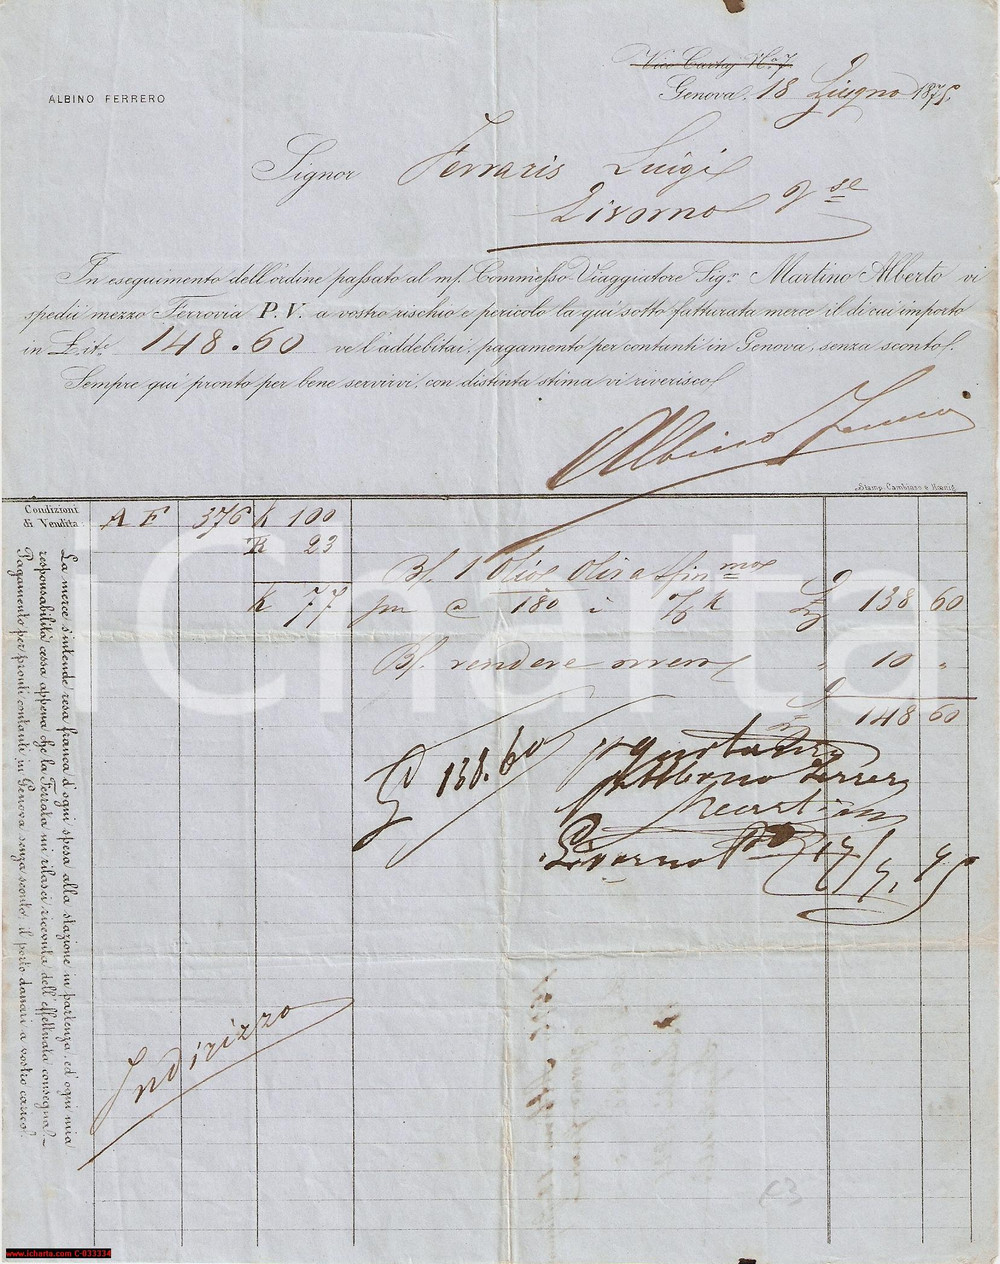 Vico Carta, N.o 7
ALBINO FERRERO
Genova, 18 Giugno 1875.
Signor Ferraris Luigi
Livorno
In eseguimento dell'ordine passato al mf. Commesso Viaggiatore Sig.r Martino Alberto vi
spedii mezzo Ferrovia P.V. a vostro rischio e pericolo la qui sotto fatturata merce il di cui importo
in L.it.e 148.60 ve l'addebitai, pagamento per contanti in Genova, senza sconto.
Sempre qui pronto per bene servirvi, con distinta stima vi riverisco
Albino Ferrero
Stamp. Cambiaso e Hœnig.
Condizioni
di Vendita
La merce s'intende resa franca d'ogni spesa alla stazione in partenza, ed ogni mia
responsabilità cessa appena che la Ferrata mi rilasci ricevuta dell'effettuata consegna.
Pagamento per pronti contanti in Genova senza sconto, il porto danari a vostro carico.
A F 376 K 100
K 23
Bf. 1 Olio Oliva
K 77 180 % K 138 60
Bf. vendere " 10 "
148 60
138.60
Albino Ferrero
Livorno 17/7. 75
Indirizzo
iCharta
www.icharta.com C-033334